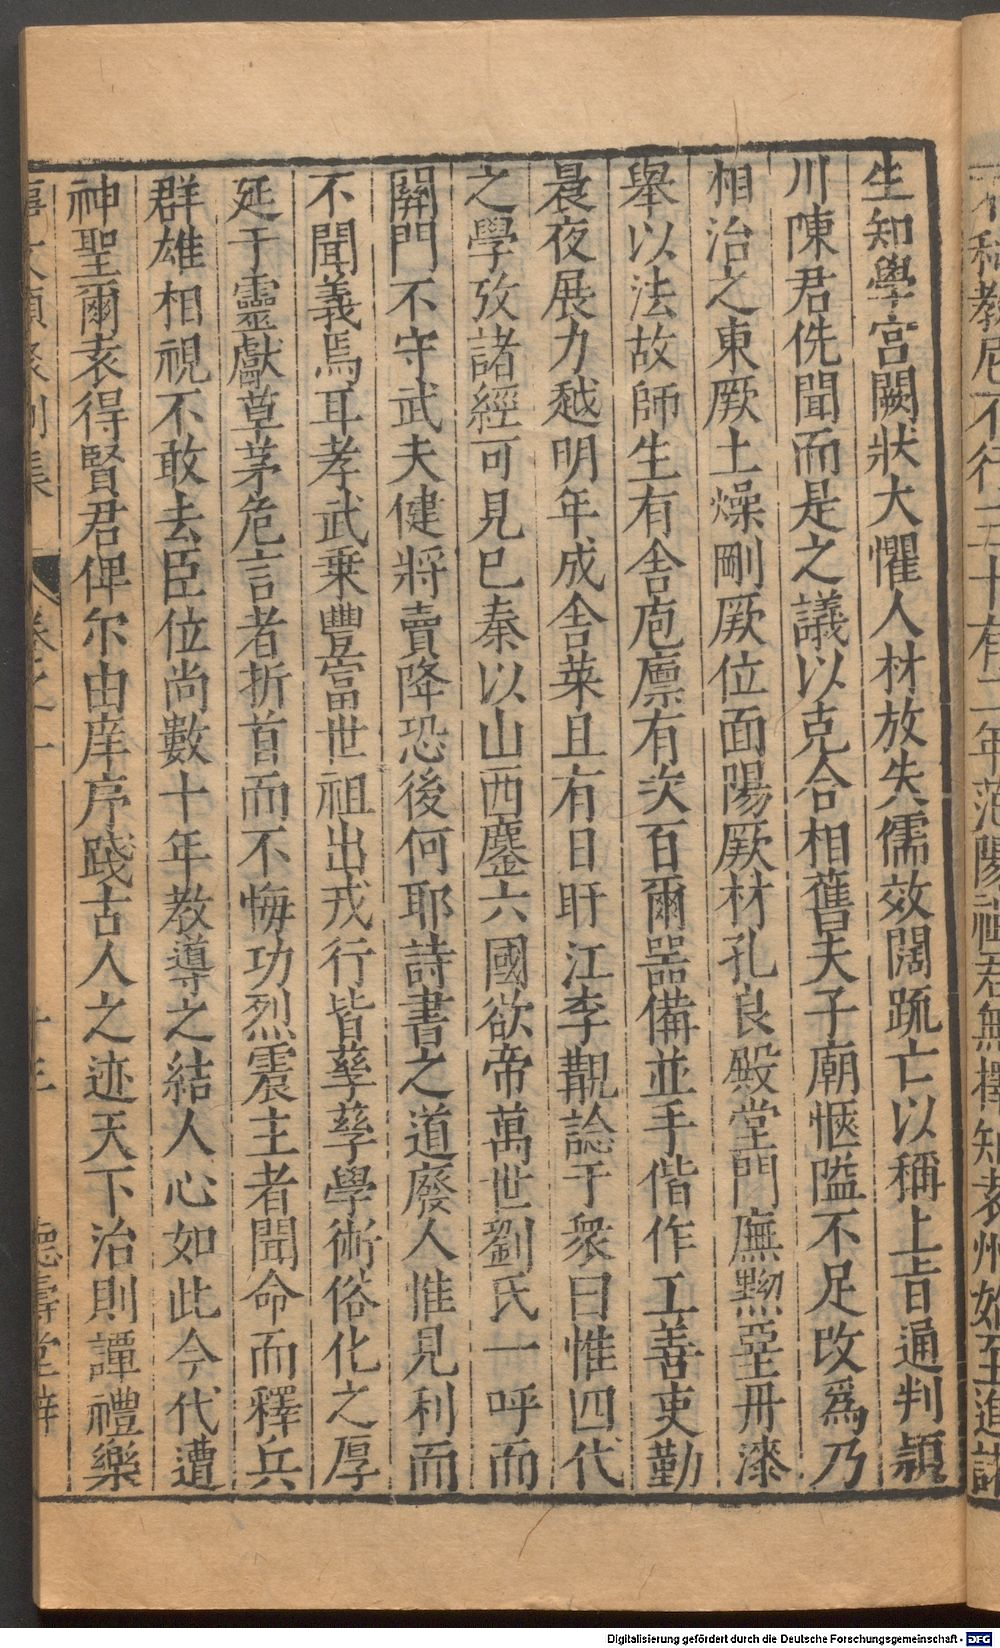 生知學宮闕狀大懼人材放失儒效闊疏亡以稱上旨通判潁
川陳君侁聞而是之議以克合相舊夫子廟愜隘不足改爲乃
相治之東厥土燥剛厥位面陽厥材孔良殿堂門廡黝堊丹漆
舉以法故師生有舍庖廪有次百爾噐備並手偕作工善吏勤
晨夜展力越明年成舍菜且有日盱江李觀諗于衆曰惟四代
之學攷諸經可見巳秦以山西鏖六國欲帝萬世劉氏一呼而
關門不守武夫健將賣降恐後何耶詩書之道廢人惟見利而
不聞義焉耳孝武乗豐富世祖出戎行皆孳孳學術俗化之厚
延于靈獻草茅危言者折首而不悔功烈震主者聞命而釋兵
群雄相視不敢去臣位尚數十年教導之結人心如此今代遭
神聖爾袁得賢君俾尔由庠序踐古人之迹天下治則譚禮樂
卷之一
德壽堂梓
不稱教尼不行三十有二年范陽祖君無擇知袁州始至進諸
Digitalisierung gefördert durch die Deutsche Forschungsgemeinschaft - DFG